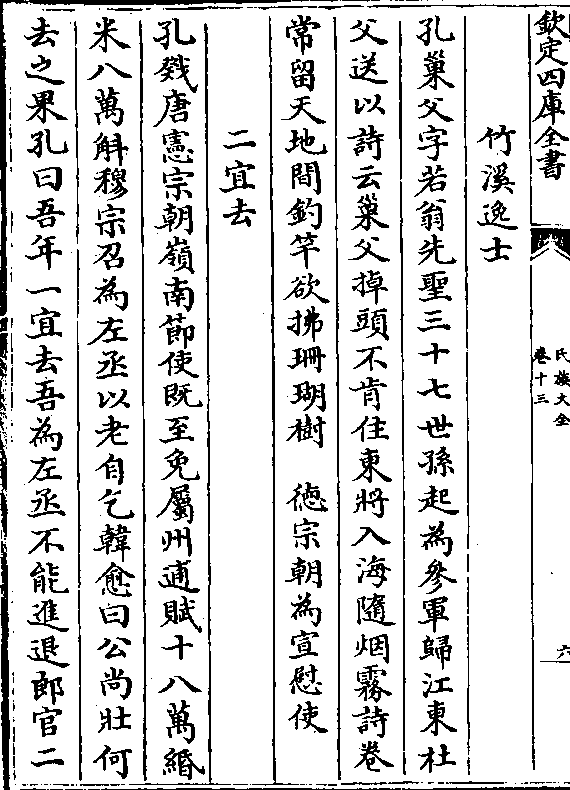 欽定四庫全書
氏族大全
卷十三
六
竹溪逸士
孔巢父字若翁先聖三十七世孫起為參軍歸江東杜
父送以詩云巢父掉頭不肯住東將入海隨烟霧詩卷
常留天地間釣竿欲拂珊瑚樹　徳宗朝為宣慰使
二宜去
孔戣唐憲宗朝嶺南節使既至免屬州逋賦十八萬緡
米八萬斛穆宗召為左丞以老自乞韓愈曰公尚壯何
去之果孔曰吾年一宜去吾為左丞不能進退郎官二